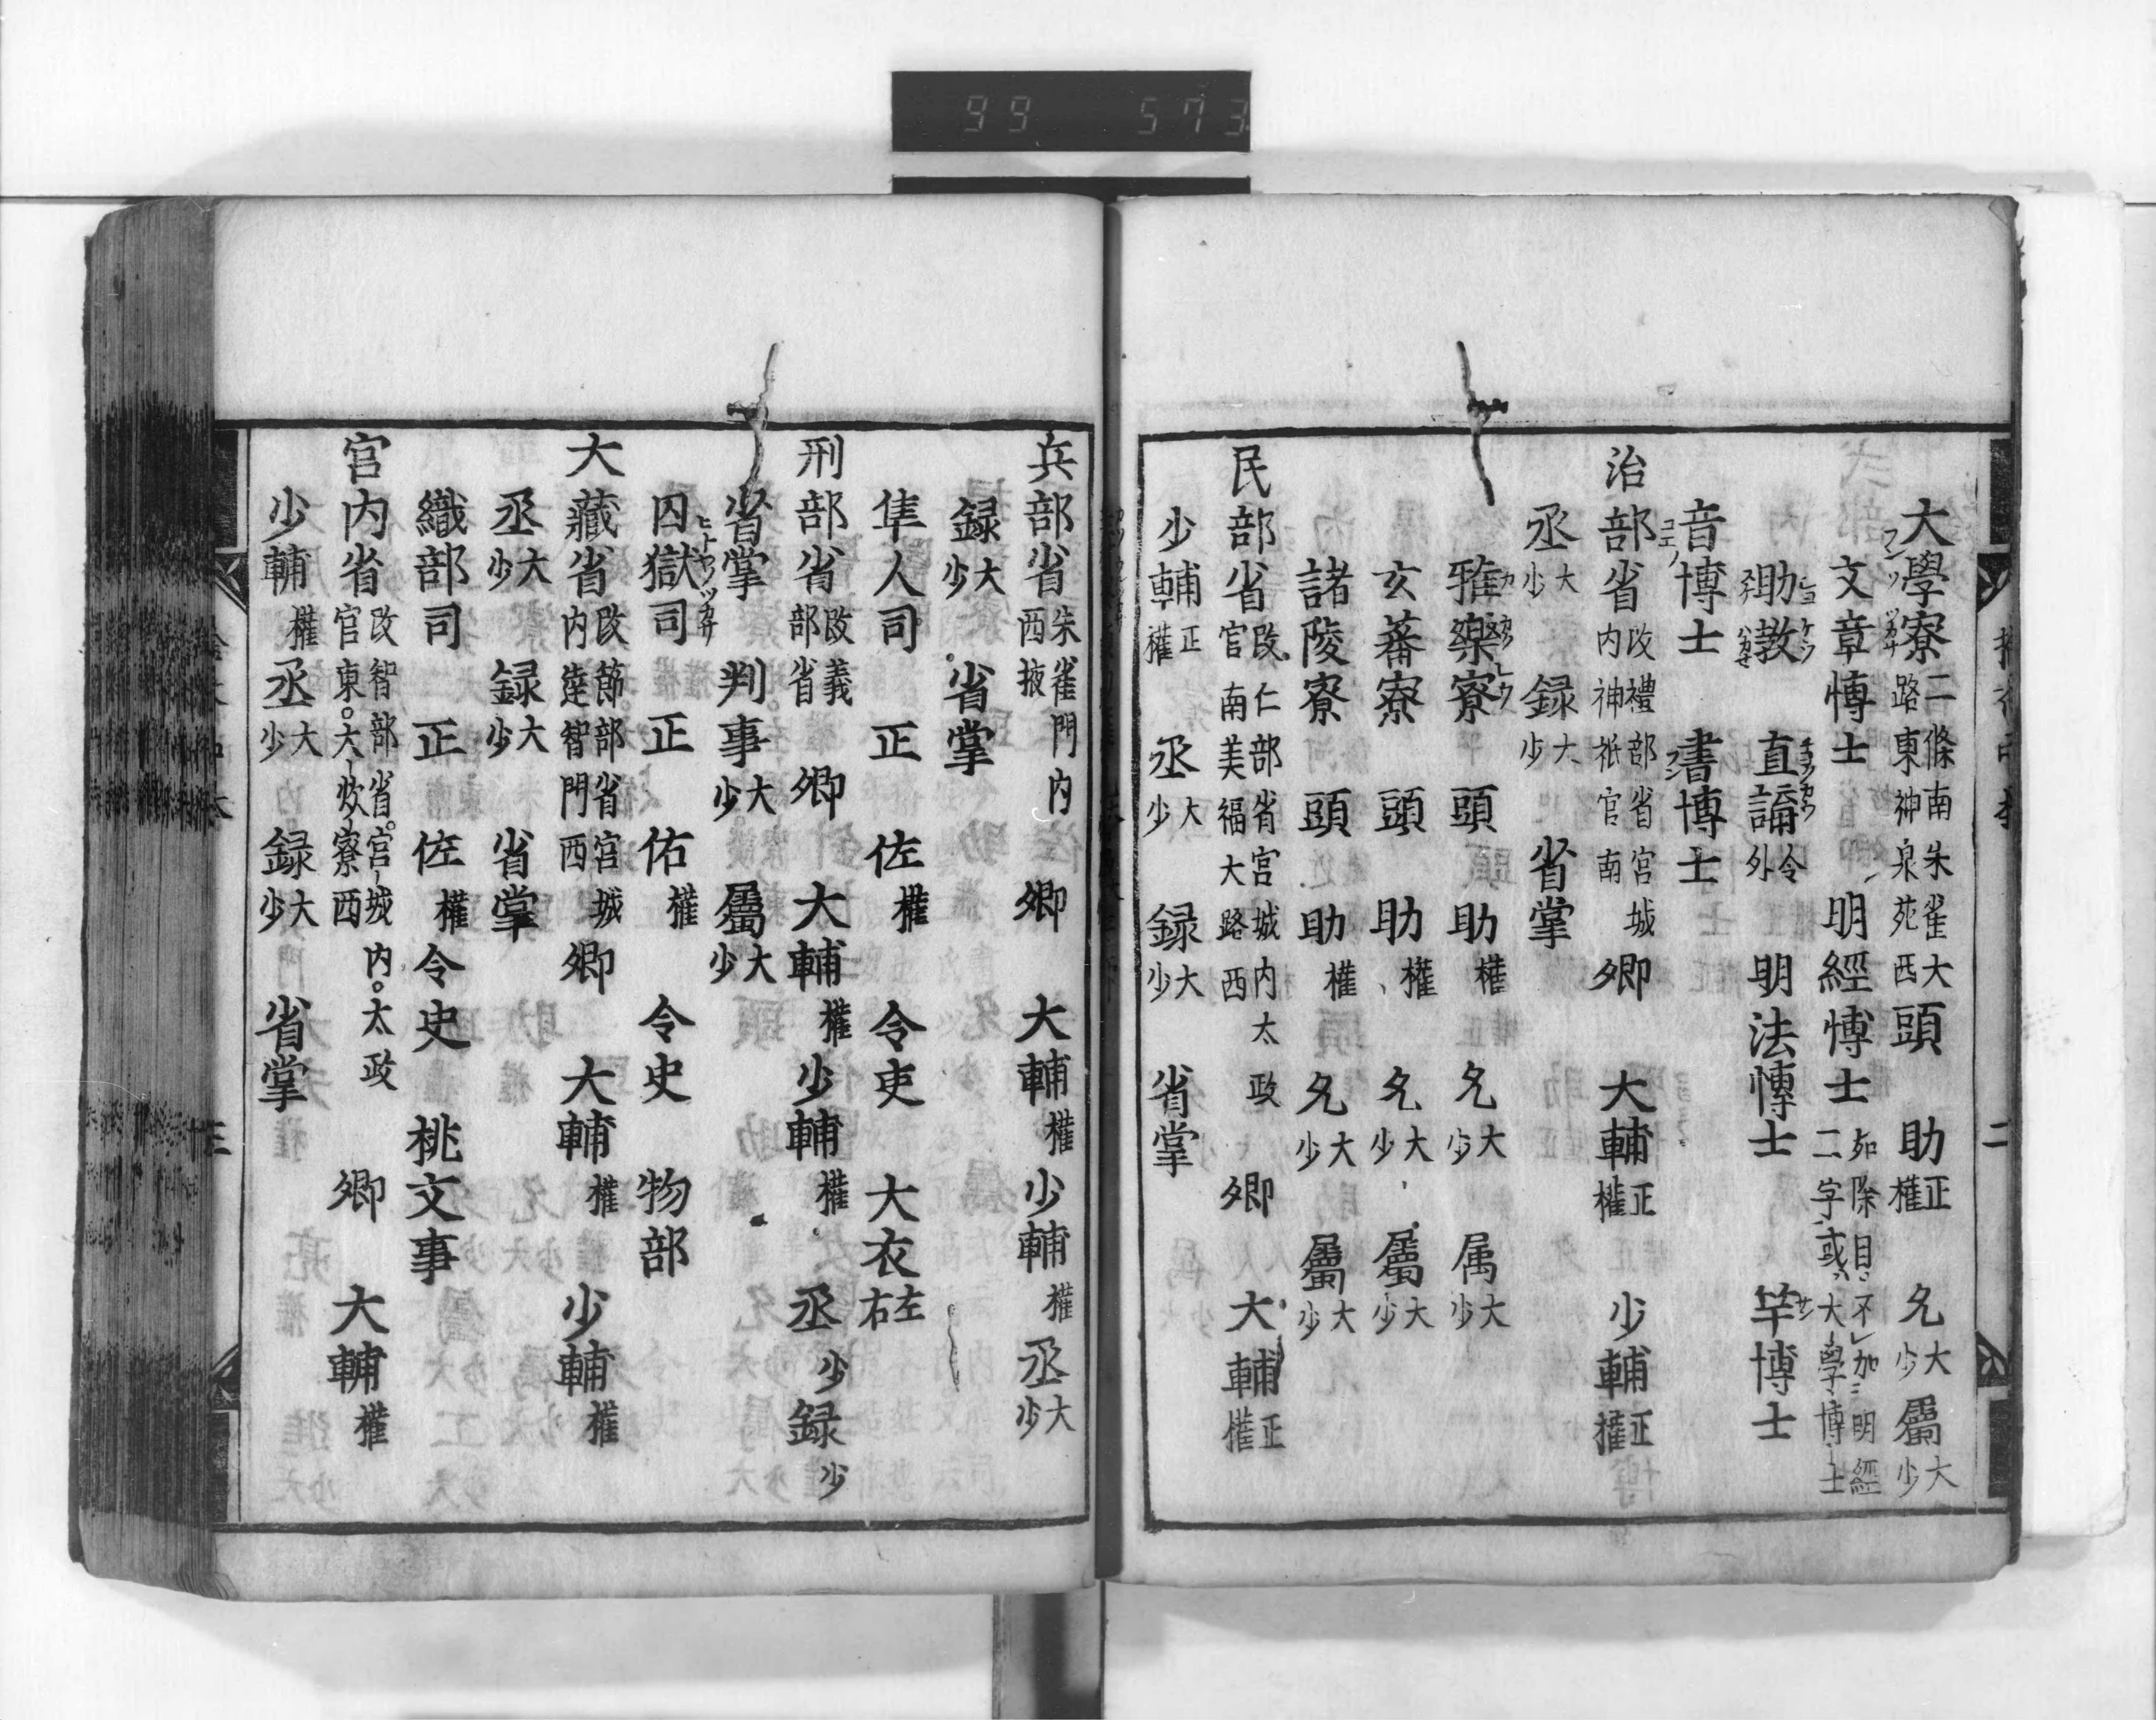 99 573
大學寮二條南朱雀大路東神泉苑西頭 助正權 允大少屬大少
文章博士 明經博士如除目不加明經二字或大學博士
助敎 直講令外 明法博士 竿博士
音博士 書博士
治部省改禮部省宮城内神祇官南卿 大輔正權 少輔正權
丞大少 録大少 省掌
雅樂寮 頭 助權 允大少 属大少
玄蕃寮 頭 助權 允大少 屬大少
諸陵寮 頭 助權 允大少 屬大少
民部省改仁部省宮城内太政官南美福大路西 卿 大輔正權
少輔正權 丞大少 録大少 省掌
兵部省朱雀門内西掖 卿 大輔權 少輔權 丞大少
録大少 省掌
隼人司 正 佐權 令吏 大衣左右
刑部省改義部省 卿 大輔權 少輔權 丞少 録少
省掌 判事大少 屬大少
囚獄司 正 佑權 令史 物部
大藏省改節部省宮城内達智門西 卿 大輔權 少輔權
丞大少 録大少 省掌
織部司 正 佐權 令史 桃文事
官内省改智部省。宮城内。太政官東。大炊寮西 卿 大輔權
少輔權 丞大少 録大少 省掌